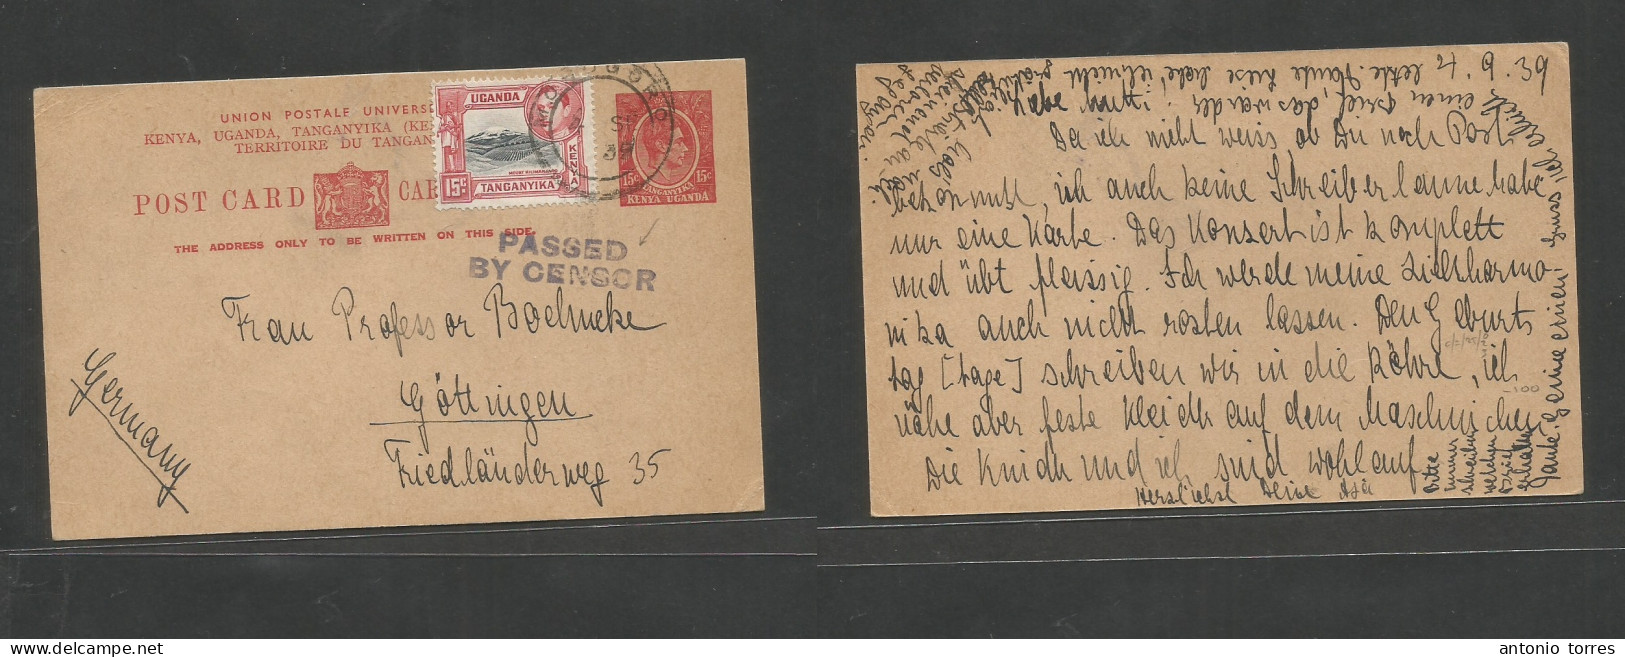 UNION POSTALE UNIVERSE
KENYA, UGANDA, TANGANYIKA (KE
TERRITOIRE DU TANGAN
POST CARD
CAR
THE ADDRESS ONLY TO BE WRITTEN ON THIS SIDE.
UGANDA
KENYA
MOUNT KILIMANJARO
15c
TANGANYIKA
15c
TANGANYIKA
15c
KENYA UGANDA
PASSED
BY CENSOR
Frau Professor
Göttingen
Friedländerweg 35
Germany
24.9.39
Liebe Mutti!
Da ich nicht weiss ob Du noch Post
bekommst, ich auch keine Schreiberlaune habe
nur eine Karte. Das Konzert ist komplett
und übt fleissig. Ich werde meine Ziehharmo-
nika auch nicht rosten lassen. Den Geburts
tag [tage] schreiben wir in die Röhre, ich
nähe aber feste Kleider auf dem Maschinchen
Die Kinder und ich sind wohlauf
Herzlichst Deine
Bitte
immer
schreiben
welchen
Brief
erhalten
antonio torres